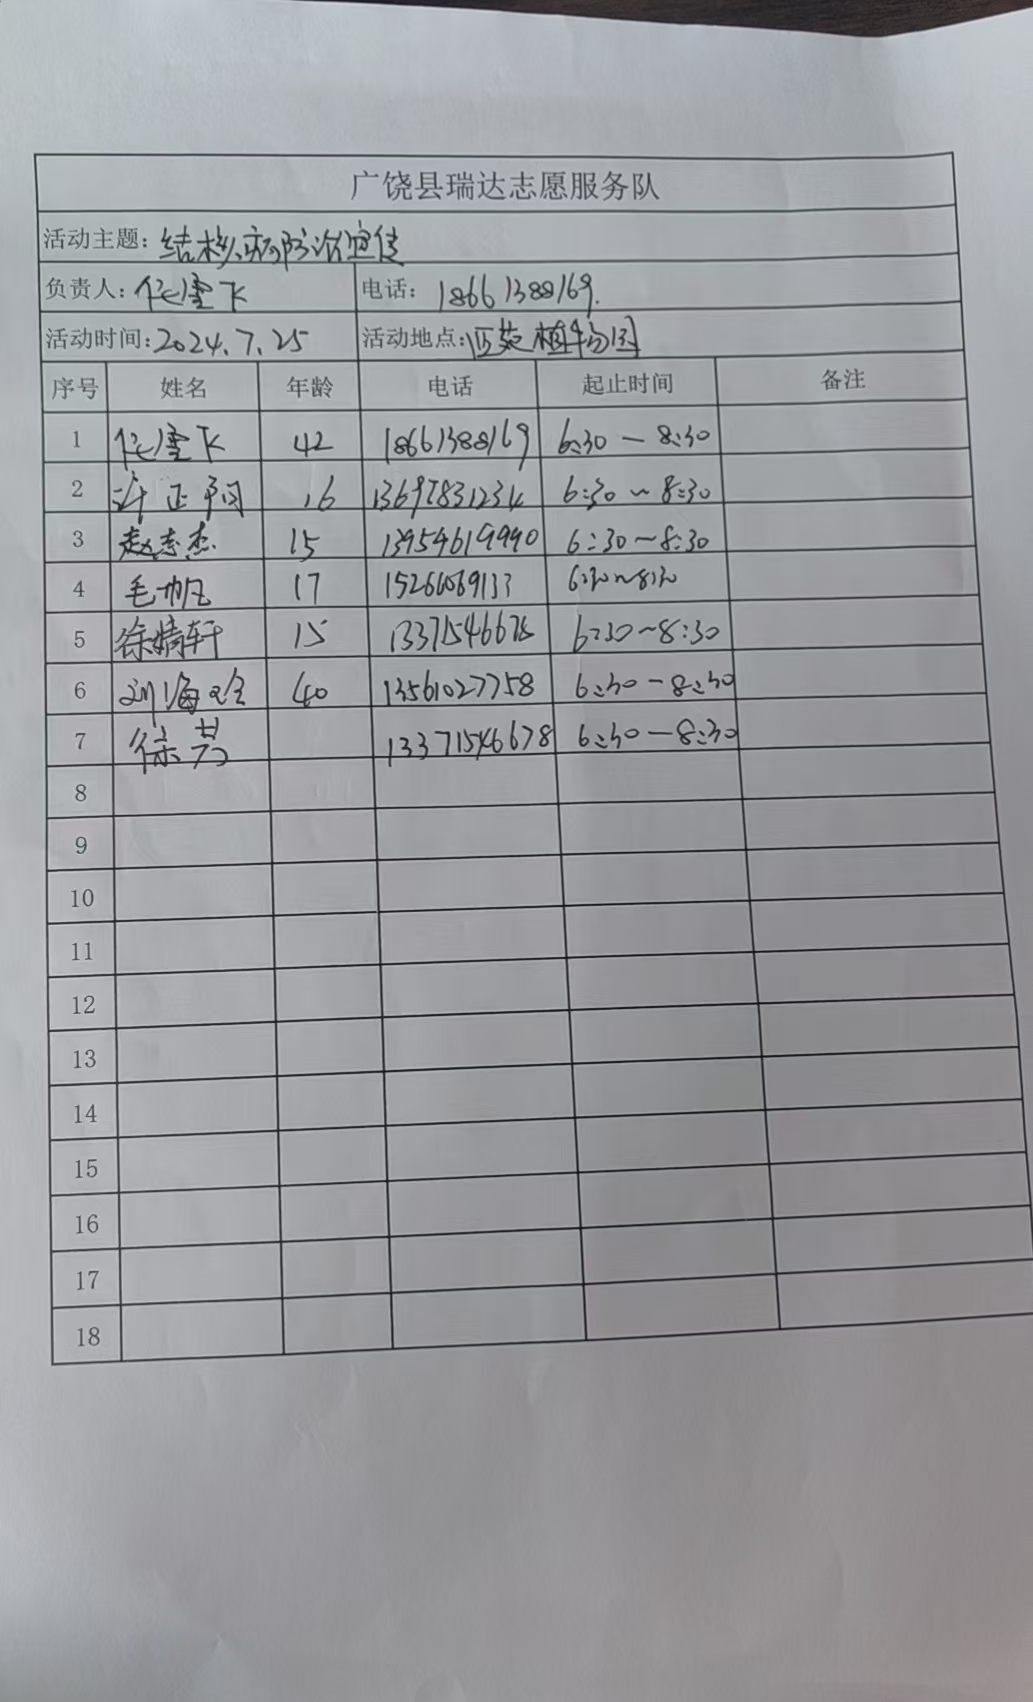 广饶县瑞达志愿服务队
活动主题: 结核病防治宣传
负责人: 任雪飞 电话: 18661388169.
活动时间: 2024.7.25 活动地点: 植物园
序号 姓名 年龄 电话 起止时间 备注
1 任雪飞 42 18661388169 6:30 — 8:30
2 许正 16 13697831234 6:30 ~ 8:30
3 赵志杰 15 13954619990 6:30 ~ 8:30
4 毛帅凡 17 15266069133 6:30 ~ 8:30
5 徐婧轩 15 6:30 ~ 8:30
6 刘海玲 40 13561027758 6:30 — 8:30
7 徐芳 13371546678 6:30 — 8:30
8
9
10
11
12
13
14
15
16
17
18